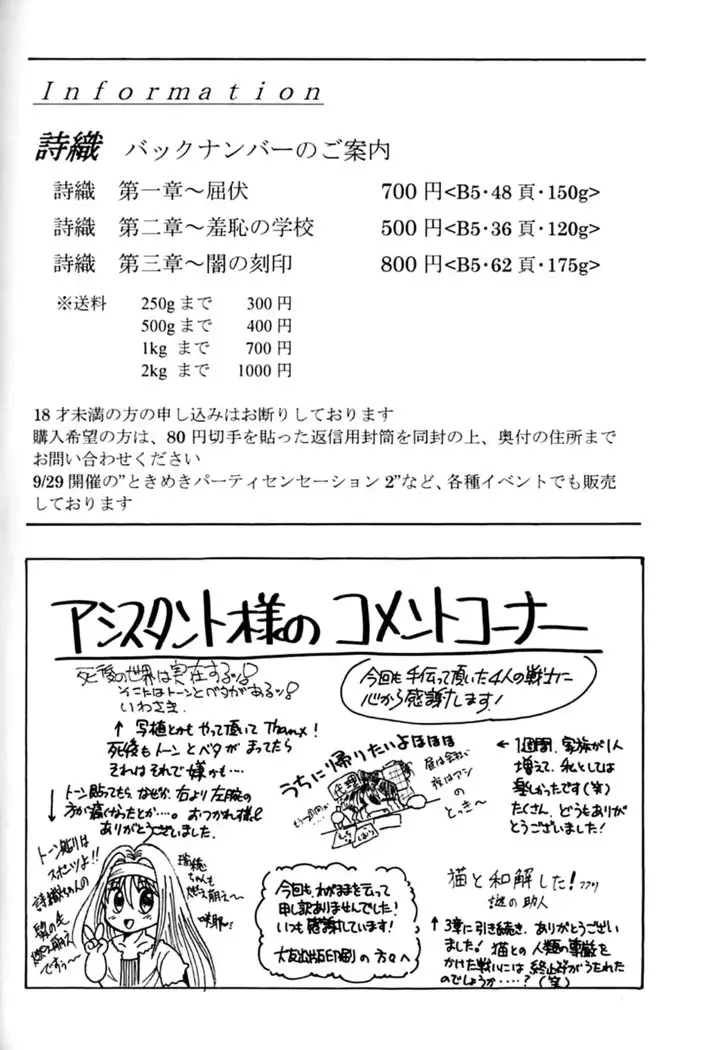 Information
詩織 バックナンバーのご案内
詩織 第一章～屈伏 700円<B5・48頁・150g>
詩織 第二章～羞恥の学校 500円<B5・36頁・120g>
詩織 第三章～闇の刻印 800円<B5・62頁・175g>
※送料 250gまで 300円
500gまで 400円
1kg まで 700円
2kg まで 1000円
18才未満の方の申し込みはお断りしております
購入希望の方は、80円切手を貼った返信用封筒を同封の上、奥付の住所まで
お問い合わせください
9/29開催の"ときめきパーティセンセーション2"など、各種イベントでも販売
しております
アシスタント様の コメントコーナー
死後の世界は実在するッ!
そこにはトーンとベタがあるッ!
いわさき
↑ 写植とかも やって頂いて Thanx!
死後も トーンと ベタが まってたら
それは それで 嫌かも…
↓ トーン貼ってもら、なぜか、右より 左腕の
方が痛くなったとか…。おつかれ様
ありがとうございました.
トーン貼りは
スポーツよ!!
詩織ちゃんの
燃え萌え
ですぅ～
瑞穂
ちゃんも
燃え萌え～
今回も 手伝って頂いた4人の戦士に
心から感謝します!
うちに帰りたいよほほほ
昼は会社
夜はアシ
のとっき～
← 1週間、家族が1人
増えて、私としては
楽しかったです(笑)
たくさん、どうもありが
とうございました!
今回も わがままを云って
申し訳ありませんでした!
いつも 感謝しています!
大友出版印刷 の 方々へ
猫と和解した! フフリ
謎の助人
↑ 3章に引き続き、ありがとうござい
ました! 猫との 人類の尊厳を
かけた戦いには 終止符がうたれた
のでしょうか……? (笑)